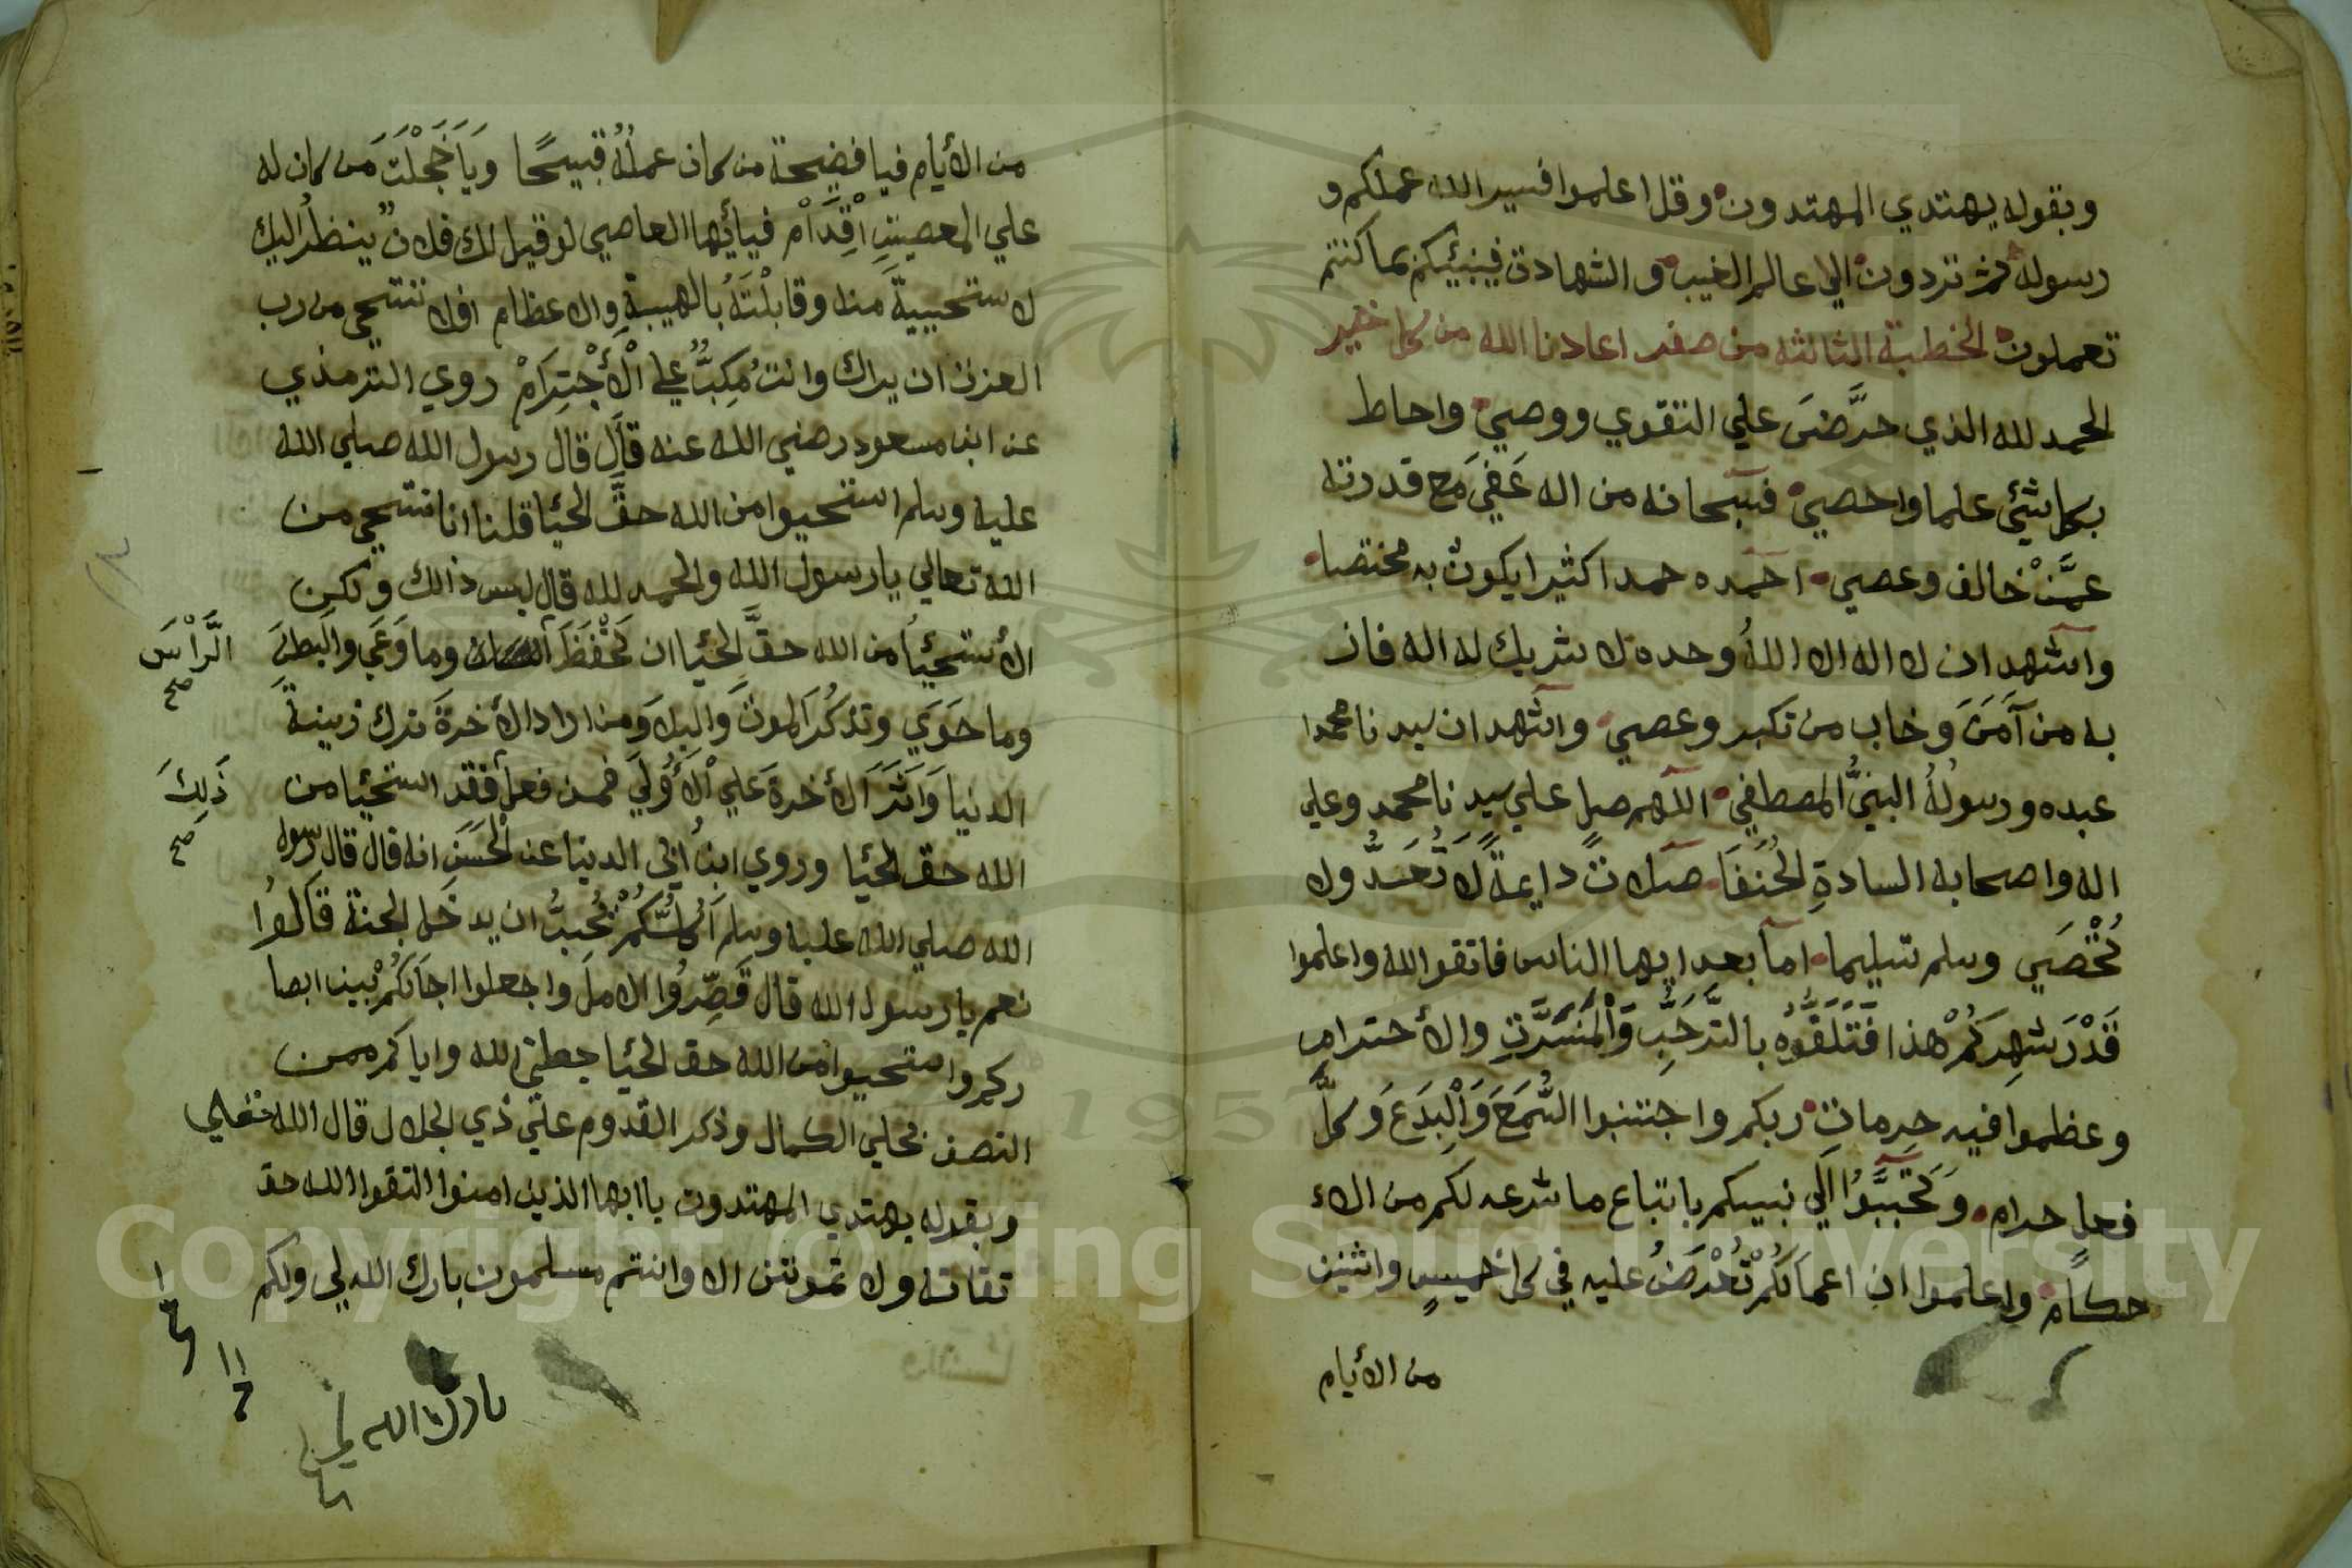 وبقوله يهتدي المهتدون وقل اعملوا فسير الله عملكم و
رسوله ثم تردون الي عالم الغيب و الشهادت فينبئيكم بما كنتم
تعملون الخطبة الثالثه من صفر اعادنا الله من كل خير
الحمد لله الذي حرَّضَ علي التقوي ووصي واحاط
بكل شئي علما واحصي فسبحانه من اله عَفيَ مَع قدرته
عمَّنْ خالف وعصي احمده حمدا كثيرا يكون به مختصا
واشهد ان لا اله الا اللهُ وحده لا شريك له اله فاز
به من آمَنَ وخاب من تكبر وعصي واشهد ان سيدنا محمدا
عبده ورسولُهُ النبيُّ المصطفي اللهم صل علي سيدنا محمد وعلي
اله واصحابه السادةِ الحُنَفَا صلاتً دايمةً لا تُعَدُّ ولا
تُحْصَي وسلم تسليما اما بعد ايها الناس فاتقوا الله واعلموا
قَدْرَ شهِركُمْ هذا فَتَلَقَّوْهُ بالتَّرَحُّبِ وَالْمَسَرَّتِ والأحترام
وعظموا فيه حِرماتِ ربكم واجتنبوا السُّمَعَ وَالْبِدَعَ وَكلَّ
فعل حرام وَتَحَبَّبُوا اَلِي نبيكم باتباع ما شرعه لكم من الاء
حكام واعلموا ان اعمالَكُمْ تُعْرَضُ عليه في كل خميسٍ واثنين
من الأيام
من الأيام فيا فضيحة من كان عملُهُ قبيحًا ويَاَ خَجْلَتَ مَن كان له
علي المعصيتِ اَقِدَاْم فيا أيُّها العاصي لو قيل لك فلانٌ ينظرُ اليك
لاستحييتَ منه وقابلْتَهُ بالهيبةِ والاعظام افلا تستحي من رب
العزت ان يراك وانت مُكِبٌّ علي الْأَجْتِرَامْ روي الترمذي
عن ابن مسعود رضي الله عنه قاَل قال رسول الله صلي الله
عليه وسلم استحيوا من الله حقَّ الحيا قلنا انا نستحي من
الله تعالي يا رسول الله والحمد لله قال ليس ذالك ولكن
الأستحيَا من الله حقَّ الحيا ان تَحْفَظَ وما وَعَي والبطنَ
الَّرأْسَ
صح
وما حَوَي وتذكُرَ الموتَ وَالبِلَا وَمن اراد الأخرةَ ترك زينةَ
الدنيا وَآثَرَ الأخرةَ عَلي الْأُولَي فمن فعل فقد استحيا من
ذَلِكَ
صح
الله حق الحيا وروي ابنُ اَبي الدنيا عن الْحَسَنِ انه قال قال رسول
الله صلي الله عليه وسلم اَكُلُّكُمْ يُحِبُّ ان يدخُل الجنة قَالُوا
نعم يا رسول الله قال قَصِّرُوا الاملَ واجعلوا اجاَلَكُمْ بين ابصا
ركم واستحيوا من الله حق الحيا جعلني الله واياكم ممن
اتصف بحلي الكمال وذكر القدوم علَي ذي الجلال قال الله تعلي
وبقوله يهتدي المهتدون يا ايها الذين امنوا اتقوا الله حق
تقاته ولا تموتن الا وانتم مسلمون بارك الله لي ولكم
بارك الله لي
Copyright © King Saud University
1957